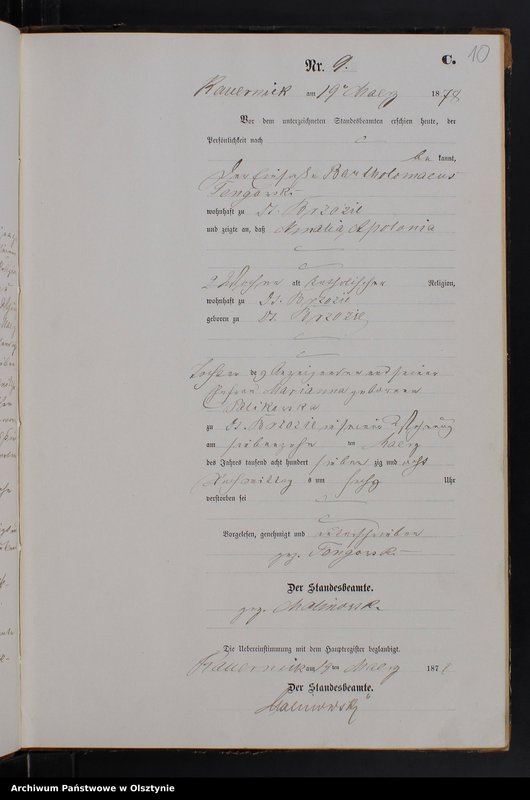 C. 10
Nr. 9.
Kauernick am 19ten Maerz 1878
Vor dem unterzeichneten Standesbeamten erschien heute, der
Persönlichkeit nach
be kannt,
der Einsasse Bartholomaeus
Tengowski
wohnhaft zu Dt. Brzozie
und zeigte an, daß Amalia Apolonia
2 Wochen alt katholischer Religion,
wohnhaft zu Dt. Brzozie
geboren zu Dt. Brzozie
Tochter des Anzeigenden und seiner
Ehefrau Marianna geborenen
zu Dt. Brzozie in seiner Wohnung
am siebenzehn ten Maerz
des Jahres tausend acht hundert sieben zig und acht
Nachmittag s um sechs Uhr
verstorben sei
Vorgelesen, genehmigt und unterschrieben
gez. Tengowski
Der Standesbeamte.
gez. Malinowski
Die Uebereinstimmung mit dem Hauptregister beglaubigt.
Kauernick am 19ten Maerz 1878
Der Standesbeamte.
Malinowski
Archiwum Państwowe w Olsztynie